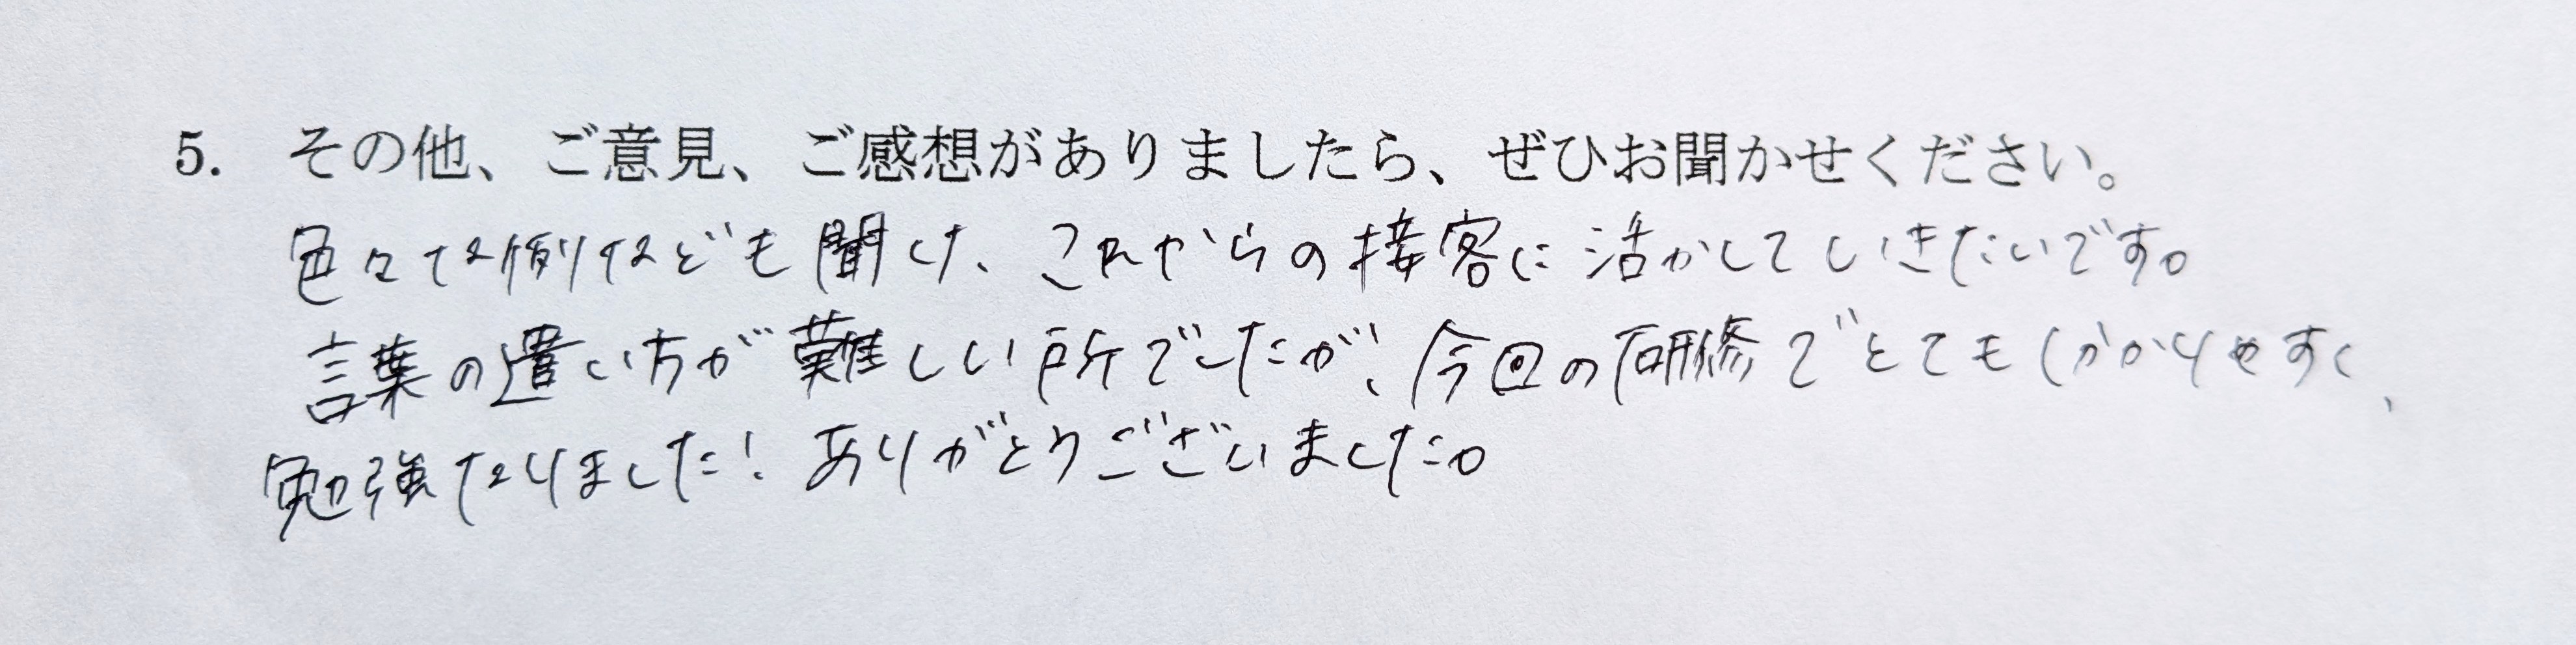 5. その他、ご意見、ご感想がありましたら、ぜひお聞かせください。
色々な例なども聞け、これからの接客に活かしていきたいです。
言葉の遣い方が難しい所でしたが、今回の研修でとてもわかりやすく、
勉強なりました！ありがとうございました。